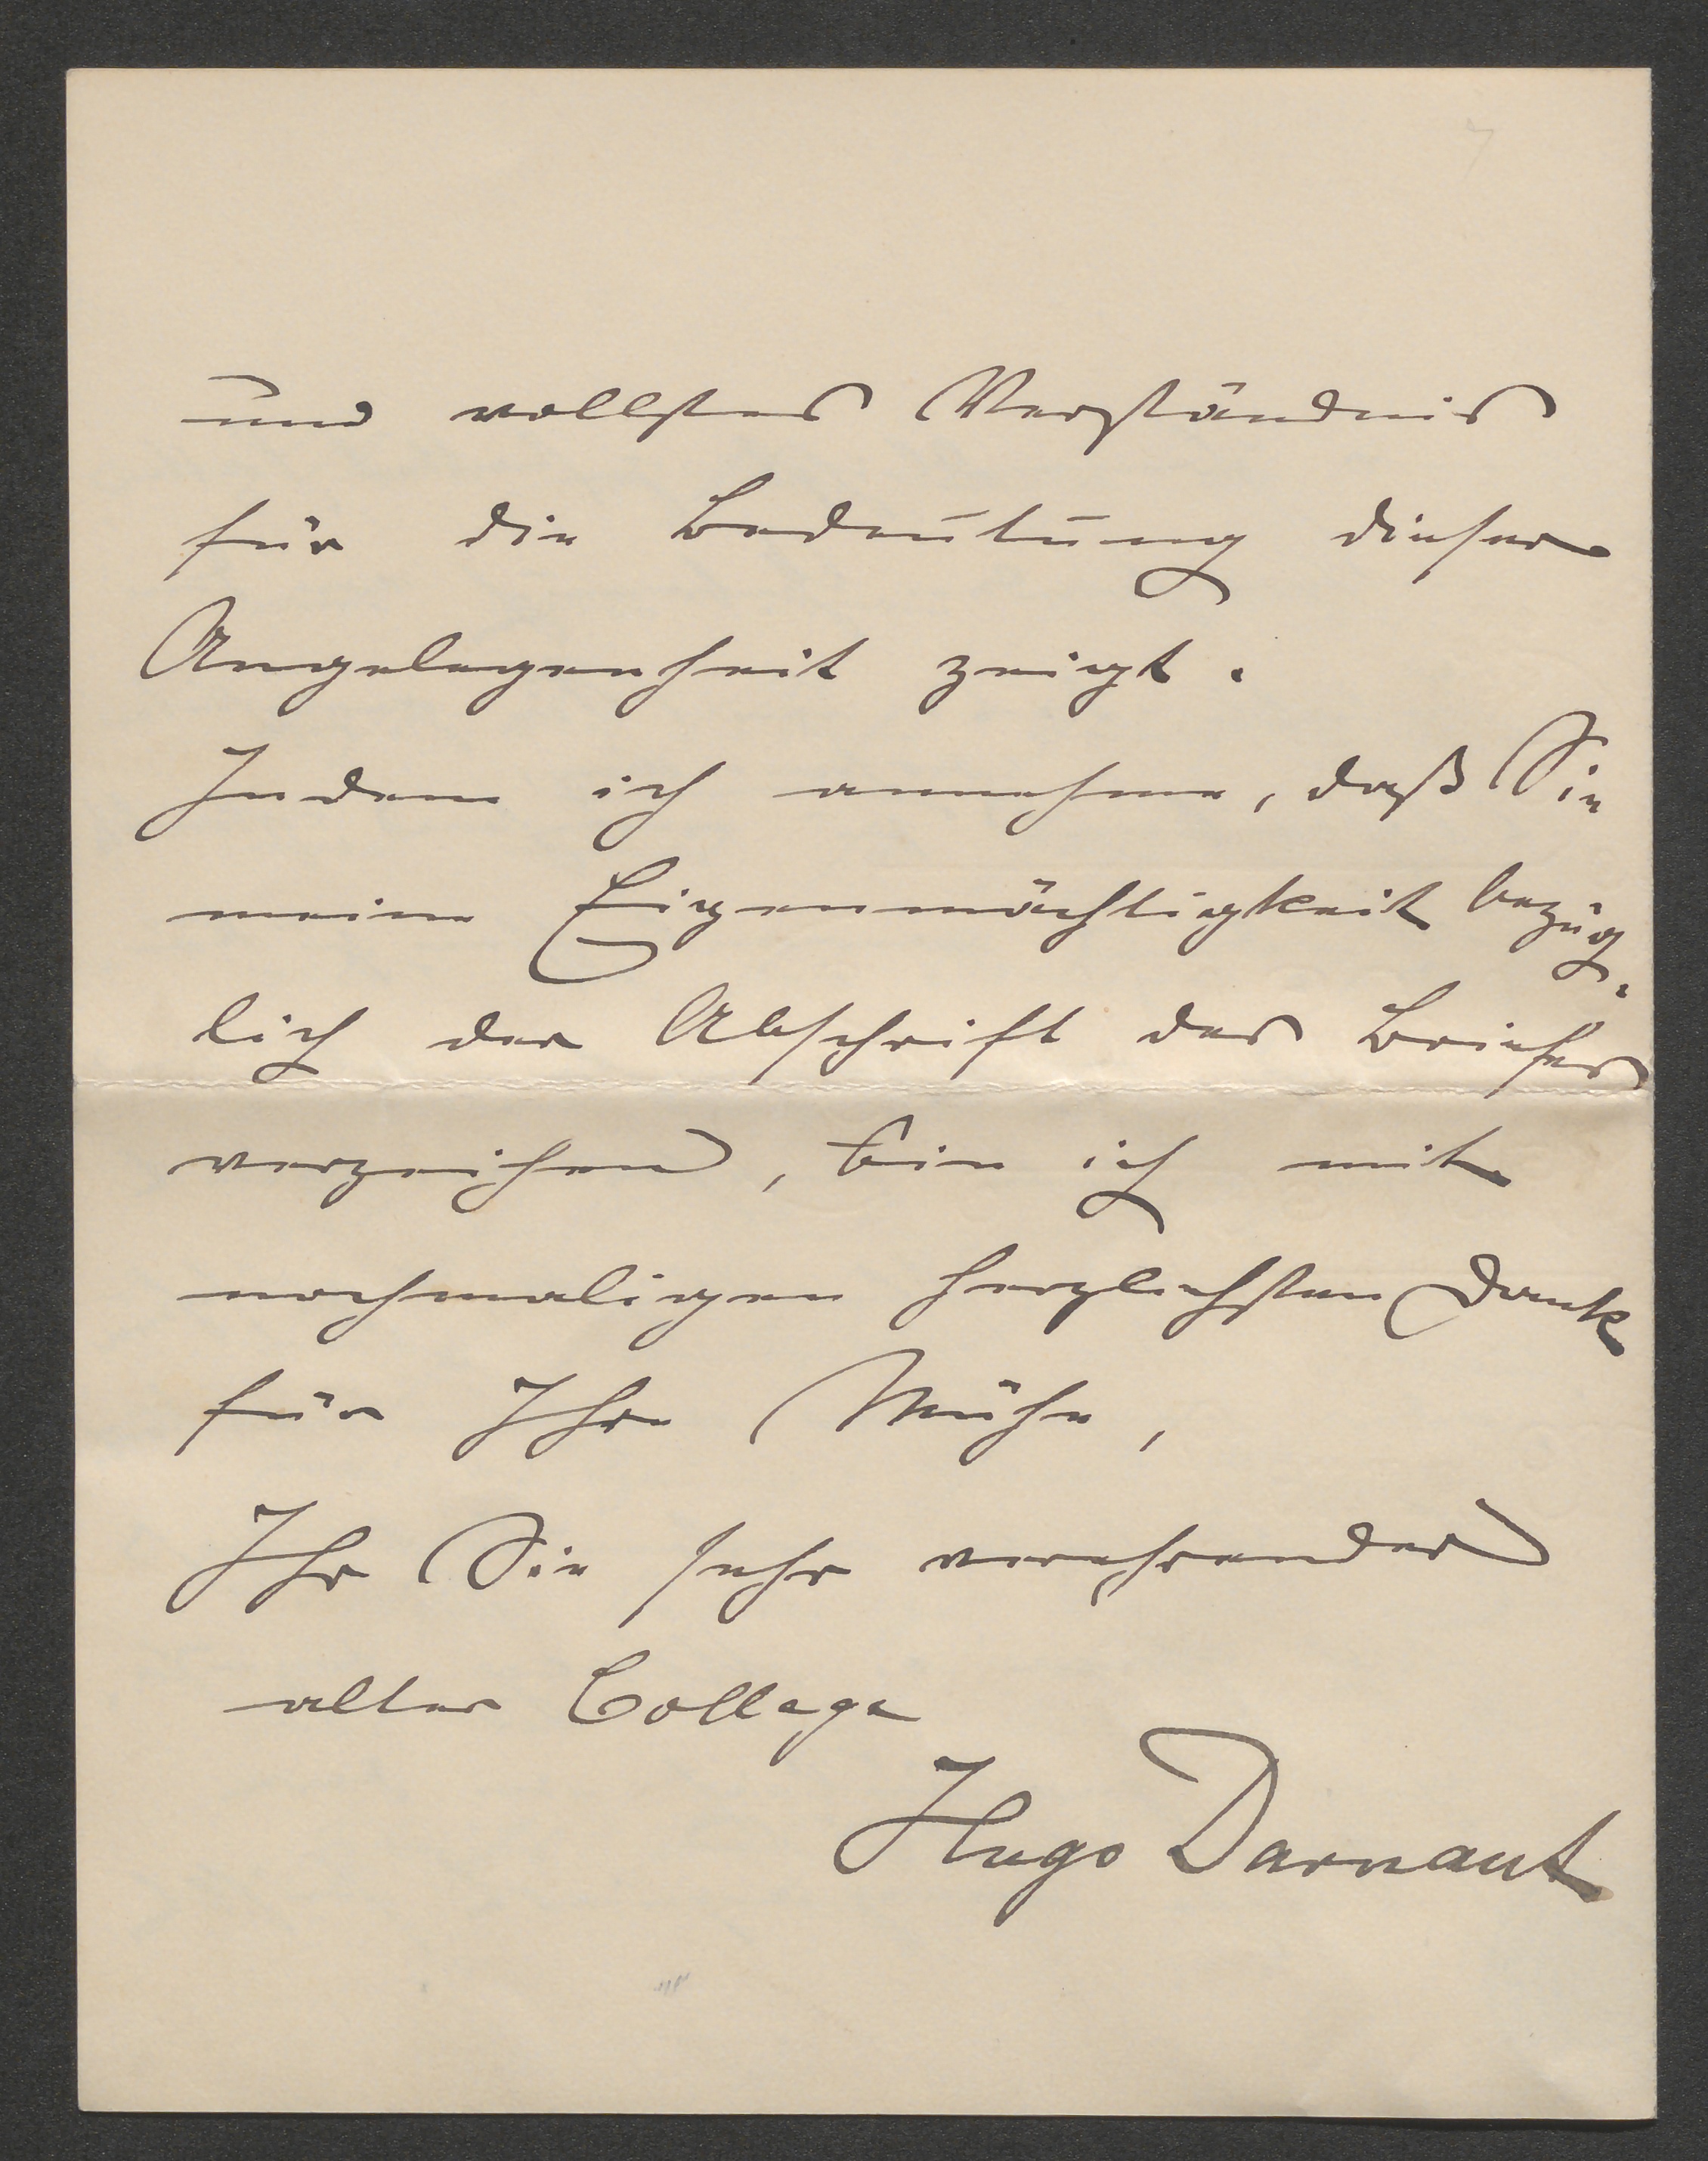 und vollstes Verständnis
für die Bedeutung dieser
Angelegenheit zeigt.
Indem ich annehme, daß Sie
meine Eigenmächtigkeit bezüg-
lich der Abschrift des Briefes
verzeihen, bin ich mit
nochmaligen herzlichsten Dank
für Ihre Mühe,
Ihr Sie sehr verehrender
alter College
Hugo Darnaut